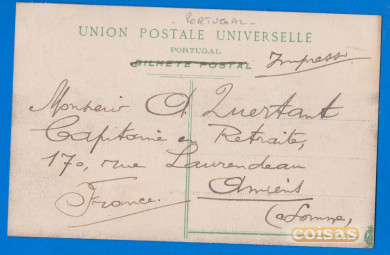 - PORTUGAL -
UNION POSTALE UNIVERSELLE
PORTUGAL
BILHETE POSTAL
Impresso
Monsieur A Quertant
Capitaine en Retraite,
170, rue Laurendeau
Amiens
(Somme)
France.
coisas